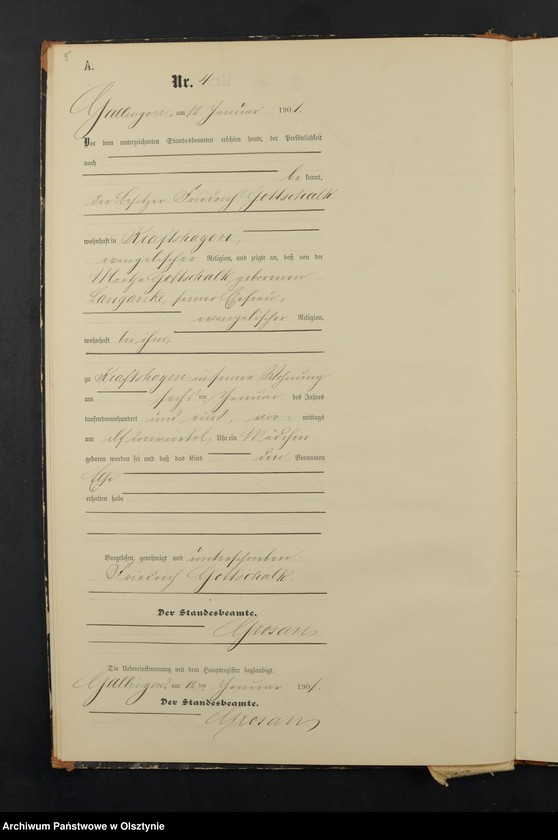 5
A.
Nr. 4
Gallingen, am 12. Januar 1901.
Vor dem unterzeichneten Standesbeamten erschien heute, der Persönlichkeit
nach
be kannt,
der Besitzer Friedrich Gottschalk
wohnhaft in Kraftshagen,
evangelischer Religion, und zeigte an, daß von der
Gottschalk geborenen
Langanke, seiner Ehefrau,
evangelischer Religion,
wohnhaft bei ihm,
zu Kraftshagen in seiner Wohnung
am sechsten Januar des Jahres
tausendneunhundert und eins, vor mittags
um elf Uhr ein Mädchen
geboren worden sei und daß das Kind den Vornamen
Else
erhalten habe
Vorgelesen, genehmigt und unterschrieben
Friedrich Gottschalk.
Der Standesbeamte.
Die Uebereinstimmung mit dem Hauptregister beglaubigt.
Gallingen, am 12 ten Januar 1901.
Der Standesbeamte.
Archiwum Państwowe w Olsztynie